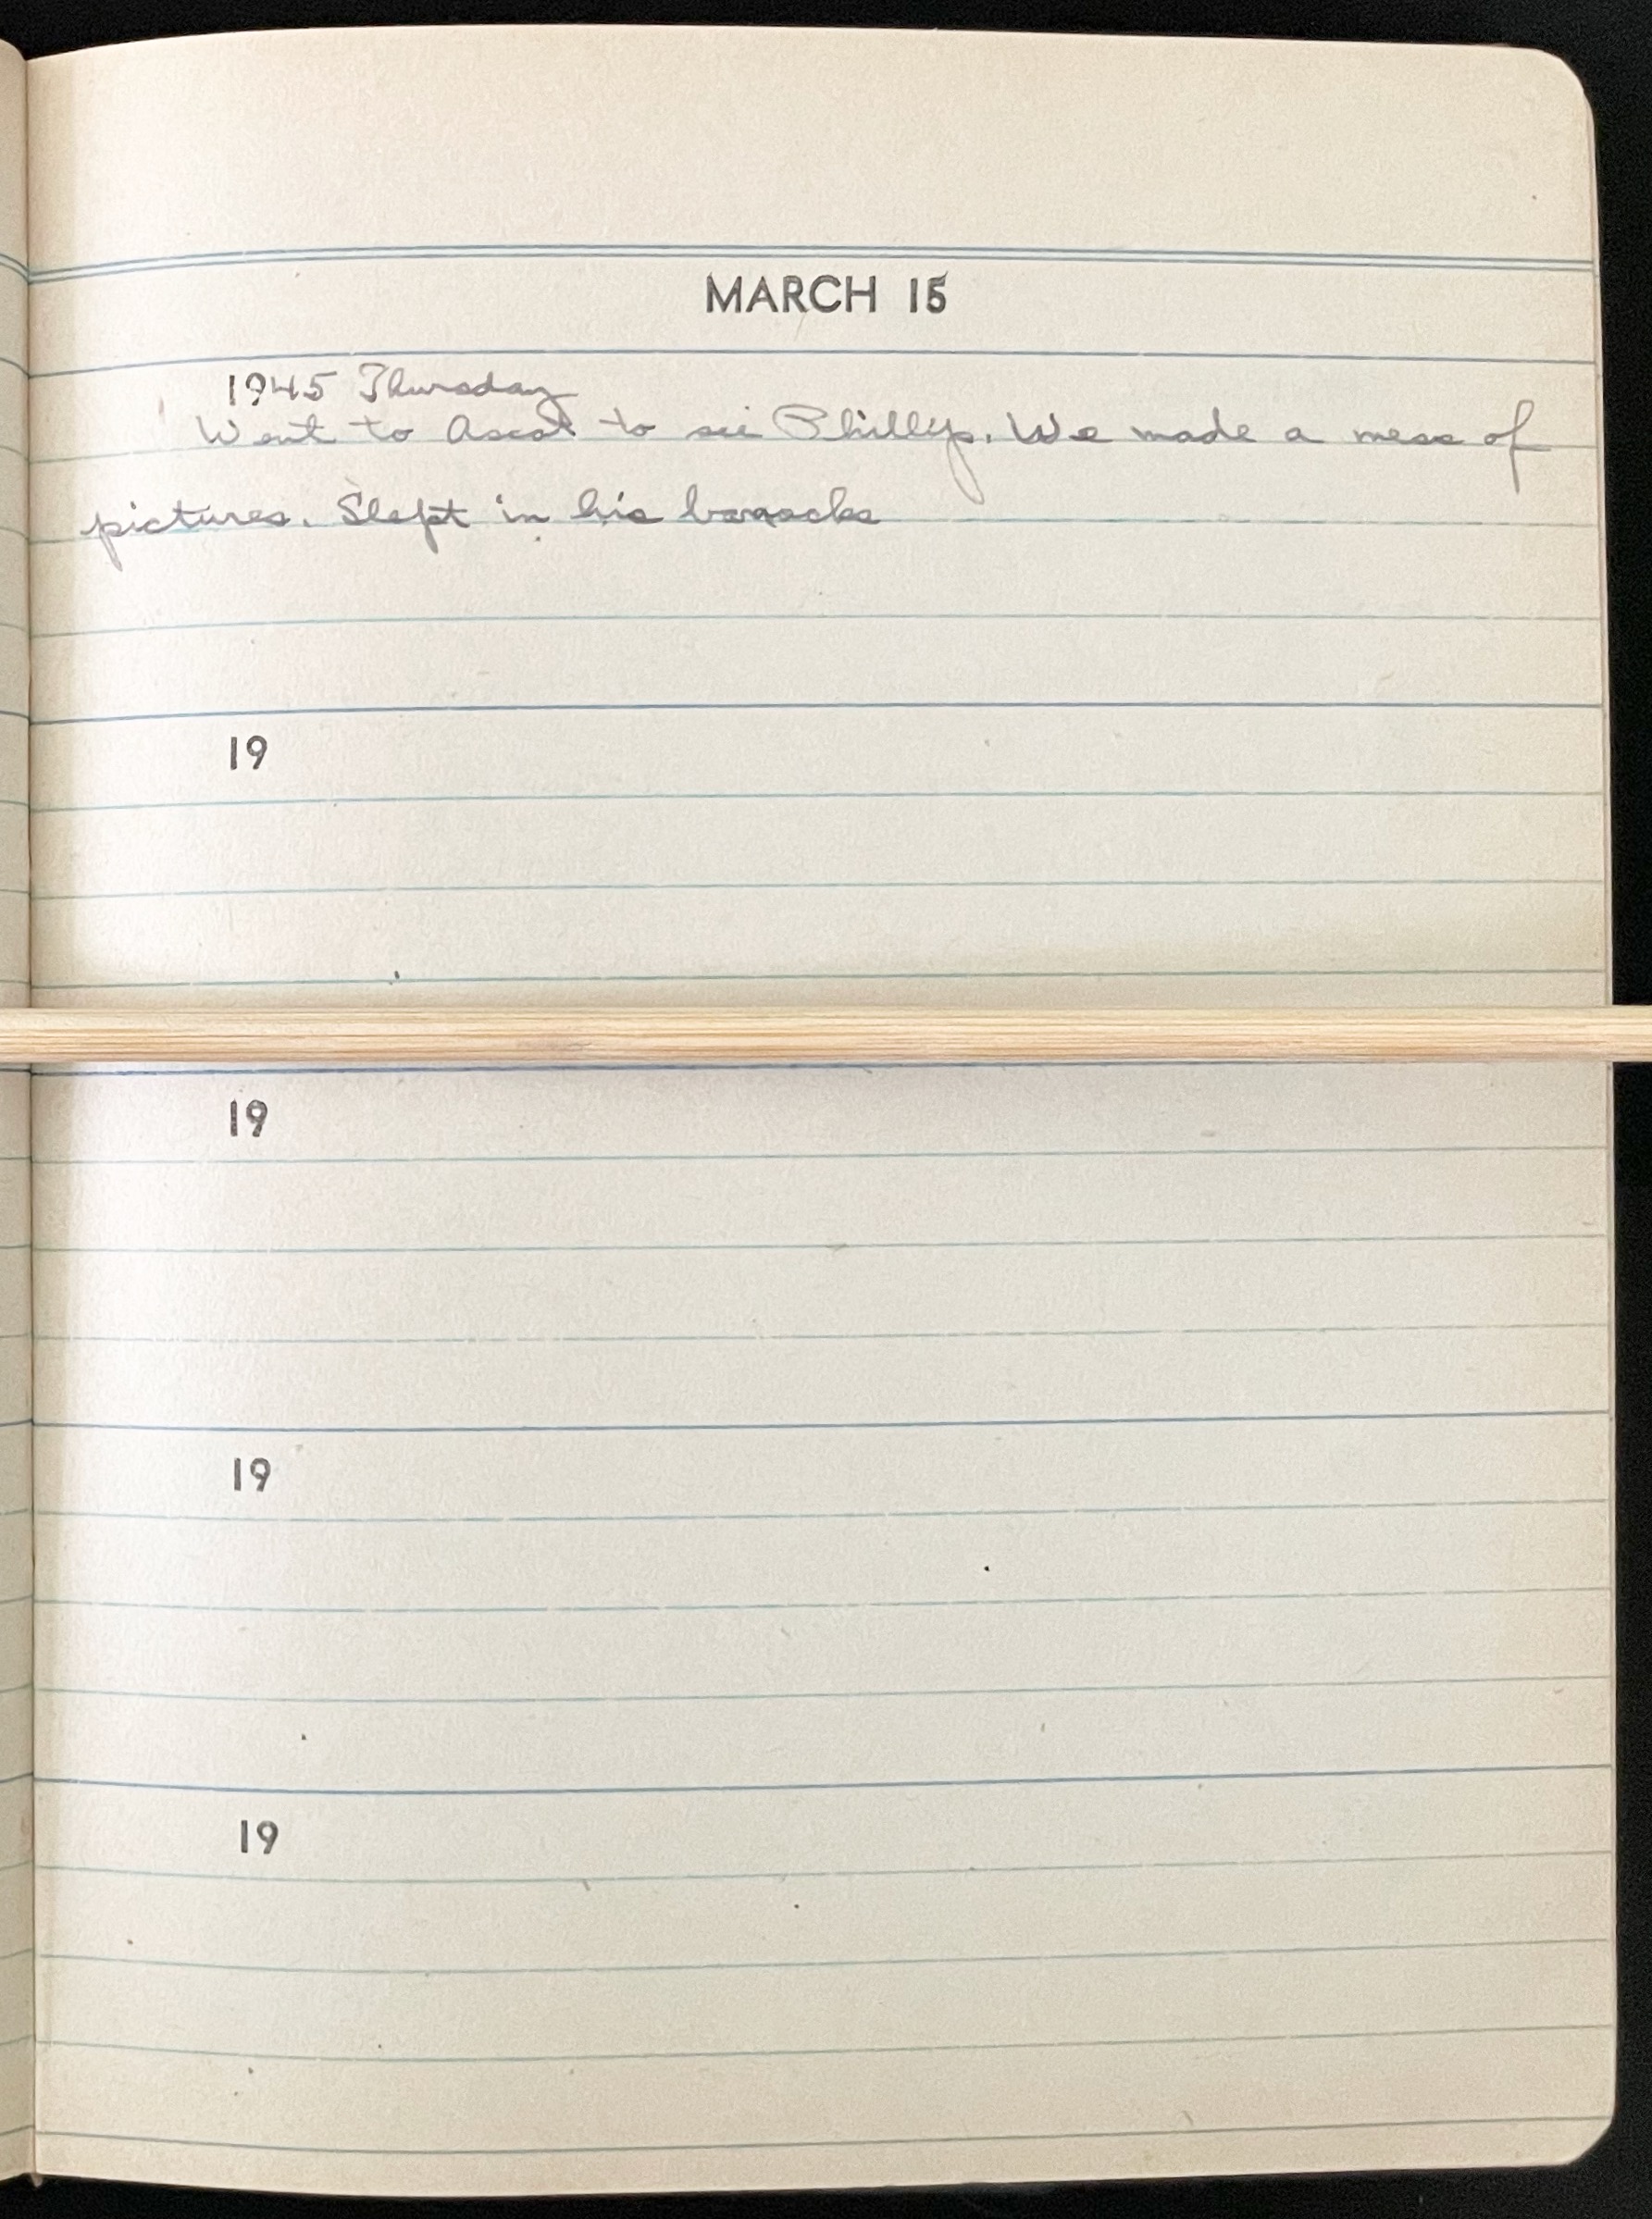 MARCH 15
1945 Thursday
Went to Ascot to see Phillys. We made a mess of
pictures. Slept in his barracks
19
19
19
19